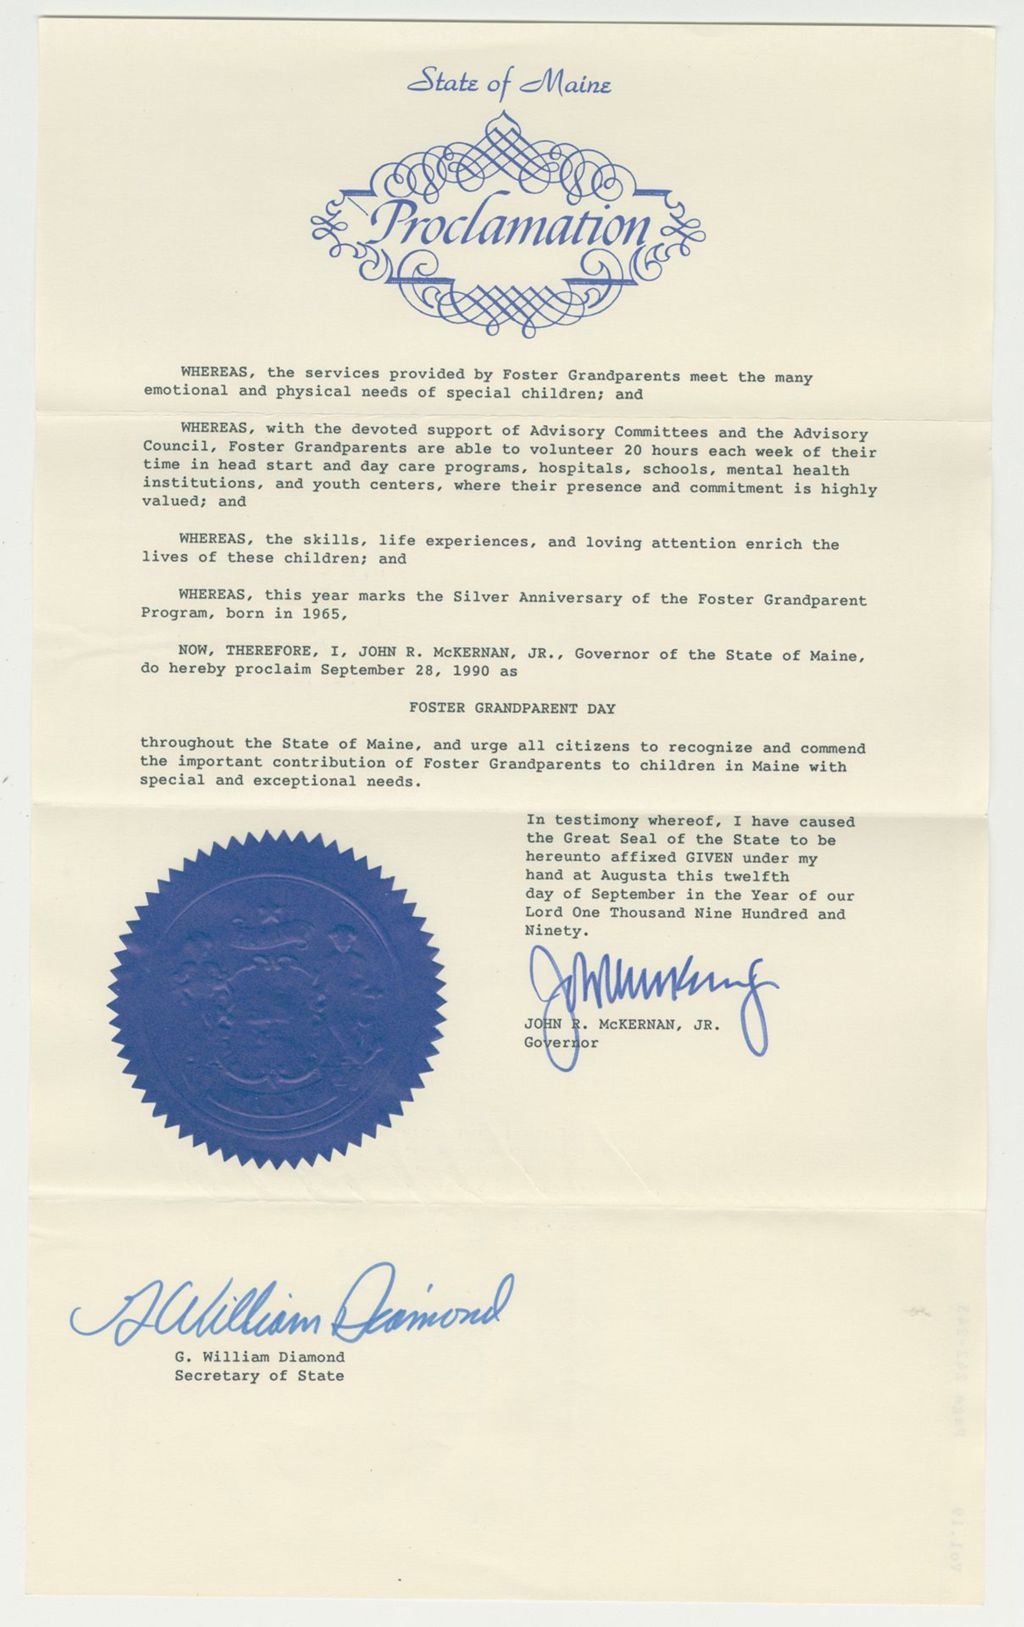 State of Maine
Proclamation
WHEREAS, the services provided by Foster Grandparents meet the many
emotional and physical needs of special children; and
WHEREAS, with the devoted support of Advisory Committees and the Advisory
Council, Foster Grandparents are able to volunteer 20 hours each week of their
time in head start and day care programs, hospitals, schools, mental health
institutions, and youth centers, where their presence and commitment is highly
valued; and
WHEREAS, the skills, life experiences, and loving attention enrich the
lives of these children; and
WHEREAS, this year marks the Silver Anniversary of the Foster Grandparent
Program, born in 1965,
NOW, THEREFORE, I, JOHN R. McKERNAN, JR., Governor of the State of Maine,
do hereby proclaim September 28, 1990 as
FOSTER GRANDPARENT DAY
throughout the State of Maine, and urge all citizens to recognize and commend
the important contribution of Foster Grandparents to children in Maine with
special and exceptional needs.
In testimony whereof, I have caused
the Great Seal of the State to be
hereunto affixed GIVEN under my
hand at Augusta this twelfth
day of September in the Year of our
Lord One Thousand Nine Hundred and
Ninety.
JOHN R. McKERNAN, JR.
Governor
G William Diamond
G. William Diamond
Secretary of State